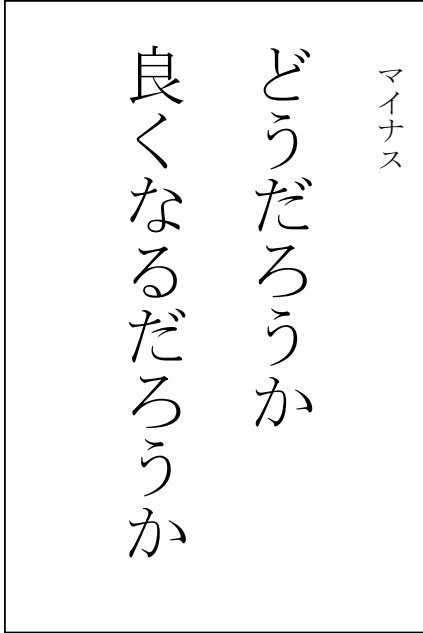 マイナス
どうだろうか
良くなるだろうか